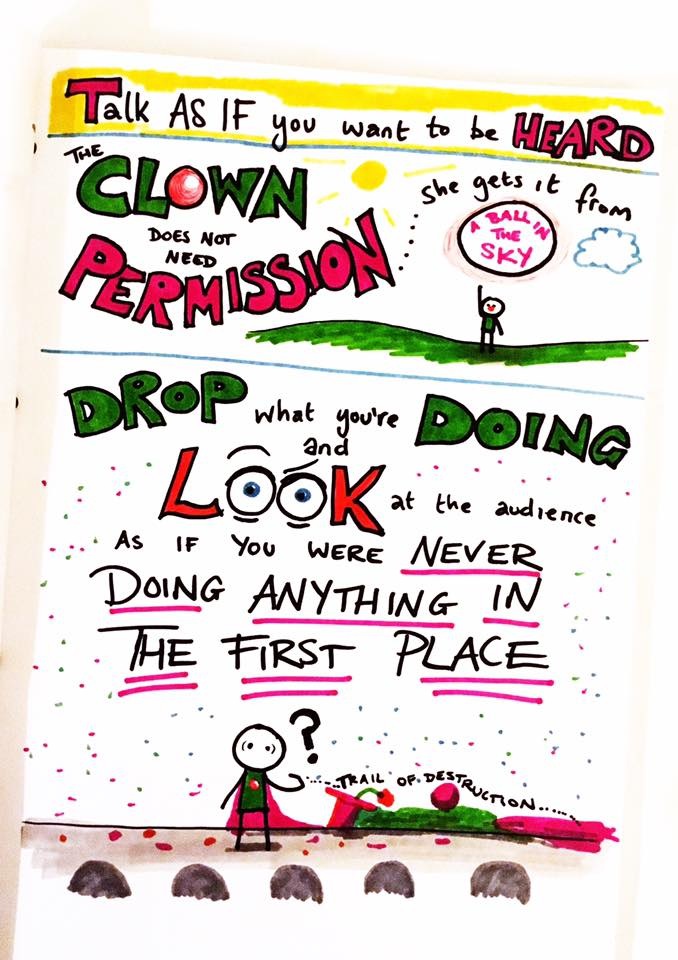 Talk AS IF you want to be HEARD
THE
CLOWN
DOES NOT
NEED
PERMISSION
she gets it from
A BALL IN
THE
SKY
DROP what you're DOING
and
LOOK at the audience
AS IF YOU WERE NEVER
DOING ANYTHING IN
THE FIRST PLACE
?
......TRAIL OF DESTRUCTION......